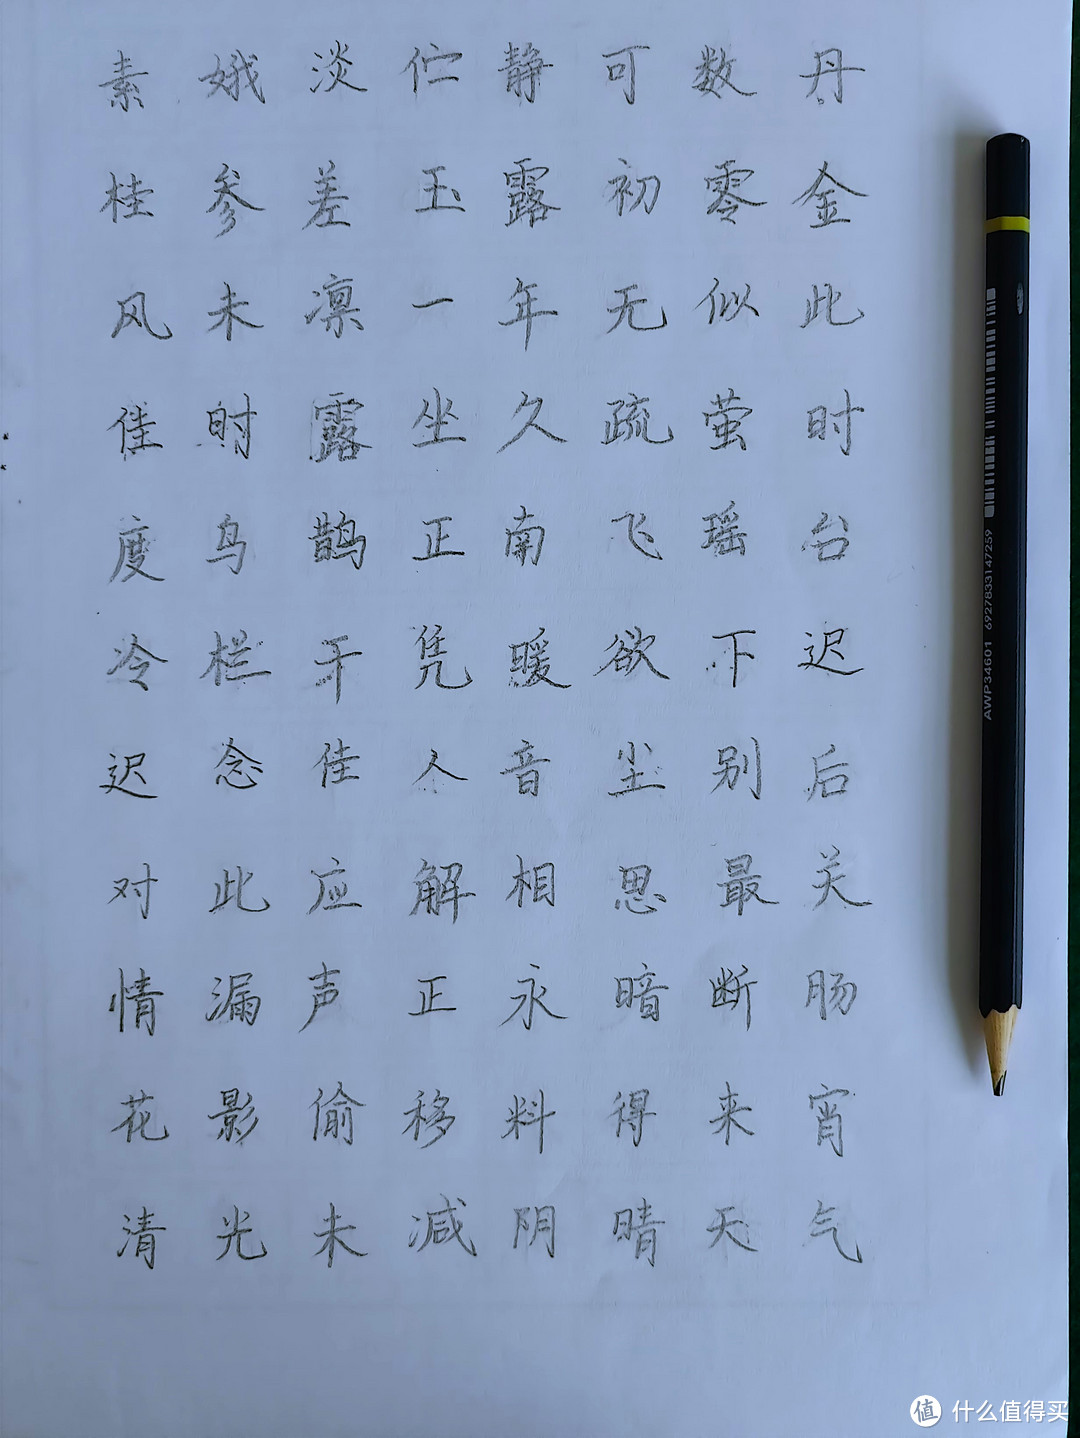 素娥淡伫静可数丹
桂参差玉露初零金
风未凛一年无似此
佳时露坐久疏萤时
度乌鹊正南飞瑶台
冷栏干凭暖欲下迟
迟念佳人音尘别后
对此应解相思最关
情漏声正永暗断肠
花影偷移料得来宵
清光未减阴晴天气
AWP34601 6927833147259
值 什么值得买